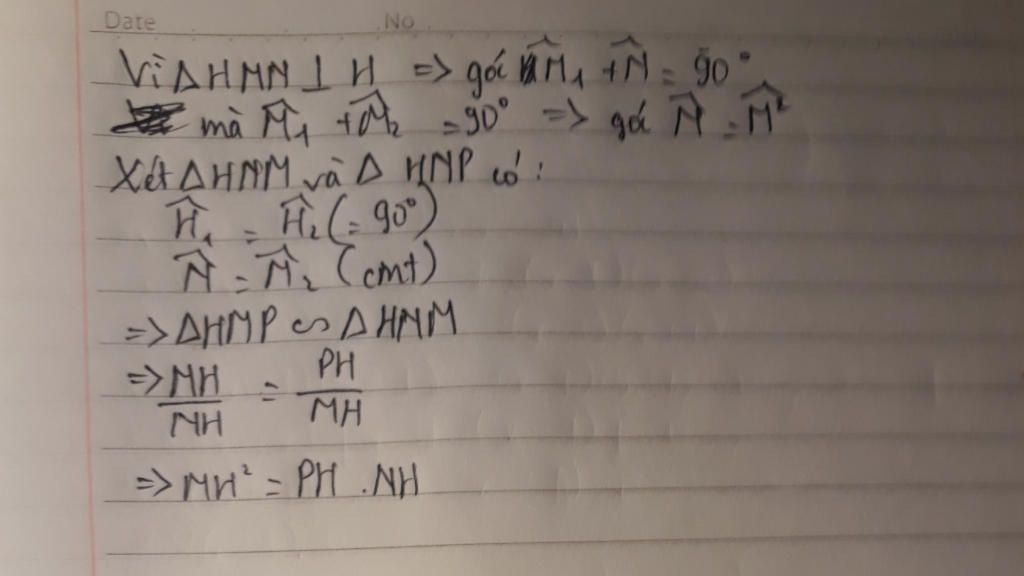 Date No
Vì ΔHMN ⊥ H => góc M̂₁ + N̂ = 90°
mà M̂₁ + M̂₂ = 90° => góc N̂ = M̂²
Xét ΔHNM và Δ HNP có :
Ĥ₁ = Ĥ₂ (= 90°)
N̂ = M̂₂ (cmt)
=> ΔHMP ∽ ΔHNM
=> MH/NH = PH/MH
=> MH² = PH . NH